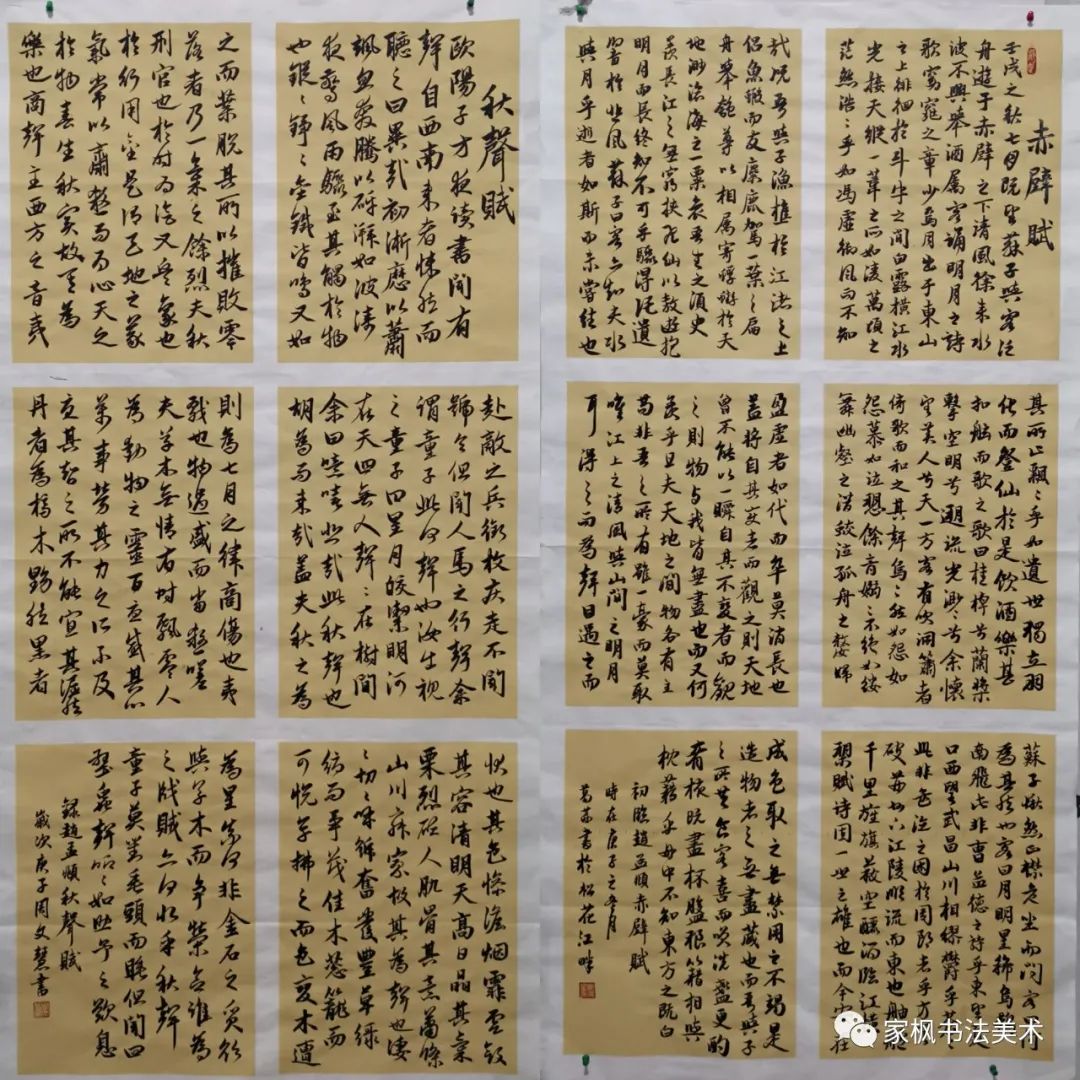 赤壁賦
壬戌之秋七月既望蘇子與客泛
舟遊于赤壁之下清風徐来水
波不興舉酒属客誦明月之詩
歌窈窕之章少焉月出于東山
之上徘徊於斗牛之间白露横江水
光接天縱一葦之所如凌萬頃之
茫然浩々乎如馮虛御風而不知
其所止飄々乎如遺世獨立羽
化而登仙於是飲酒樂甚
扣舷而歌之歌曰桂棹兮蘭槳
擊空明兮遡流光渺々兮余懷
望美人兮天一方客有吹洞簫者
倚歌而和之其聲烏々然如怨如
怨慕如泣愬餘音嫋々不绝如縷
舞幽壑之潜蛟泣孤舟之嫠婦
蘇子愀然正襟危坐而问客曰何
為其然也客曰月明星稀烏鵲
南飛此非曹孟德之詩乎東望夏
口西望武昌山川相繆欝乎蒼々
此非孟德之困於周郎者乎方其
破荆州下江陵順流而東也舳艫
千里旌旗蔽空釃酒臨江横
槊賦诗固一世之雄也而今安在
哉况吾與子漁樵於江渚之上
侣魚鰕而友麋鹿駕一葉之扁
舟舉匏尊以相属寄蜉蝣於天
地渺滄海之一粟哀吾生之須臾
羨長江之無窮挟飛仙以敖遊抱
明月而長终知不可乎驟得託遺
響於悲風蘇子曰客亦知夫水
與月乎逝者如斯而未嘗往也
盈虛者如代而卒莫消長也
盖将自其变者而觀之则天地
曾不能以一瞬自其不變者而觀
之则物与我皆無盡也而又何
羨乎且夫天地之間物各有主
苟非吾之所有雖一豪而莫取
唯江上之清風與山間之明月
耳得之而為聲目遇之而
成色取之無禁用之不竭是
造物者之無盡藏也而吾與子
之所共食客喜而笑洗盞更酌
肴核既盡杯盤狼籍相與
枕藉乎舟中不知東方之既白
初臨趙孟頫赤壁賦
時在庚子之冬月
書於松花江畔
秋聲賦
歐陽子方夜读書聞有
聲自西南来者悚然而
聽之曰異哉初淅瀝以蕭
颯忽奔騰以砰湃如波涛
夜驚風雨驟至其觸於物
也鏦々錚々金鐵皆鳴又如
赴敵之兵銜枚疾走不聞
號令但聞人馬之行聲余
謂童子此何聲也汝出視
之童子曰星月皎潔明河
在天四無人聲々在樹間
余曰噫嘻悲哉此秋聲也
胡為而来哉盖夫秋之為
状也其色惨澹烟霏雲斂
其容清明天高日晶其氣
栗烈砭人肌骨其意蕭條
山川寂寥故其為聲也凄
々切々呼號奮發豐草绿
缛而爭茂佳木葱籠而
可悦草拂之而色变木遭
之而葉脱其所以摧敗零
落者乃一氣之餘烈夫秋
刑官也於时为阴又兵象也
於行用金是谓天地之義
氣常以肅殺而为心天之
於物春生秋实故其為
樂也商聲主西方之音夷
則為七月之律商傷也夷
戮也物過盛而當殺嗟
夫草木無情有时飄零人
為動物之靈百憂感其心
萬事劳其力之所不及
憂其智之所不能宜其渥然
丹者為槁木黟然黑者
為星奈何非金石之质欲
與草木而争榮念谁為
之戕賊亦何恨乎秋聲
童子莫對垂頭而睡但聞四
壁蟲聲唧々如助予之歎息
録趙孟頫秋聲賦
歲次庚子周文慧書
家枫书法美术